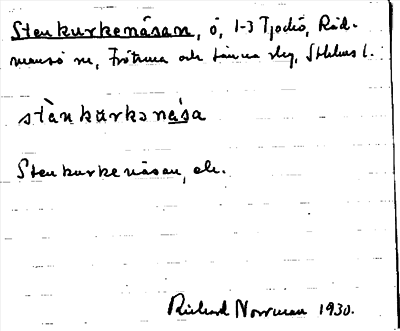 Stenkurkenäsan, ö, 1-3 Tjockö, Råd-
mansö sn, Frötuna och Länna slg, Sthlms l.
stànkurkənása
Stenkurkenäsan, ek.
Richard Norrman 1930.